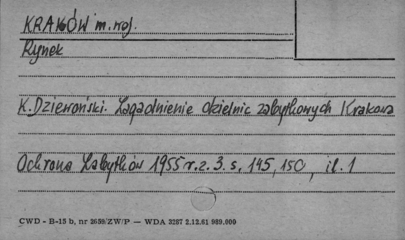 KRAKÓW m. woj.
Rynek
K. Dziewoński. Zagadnienie dzielnic zabytkowych Krakowa
Ochrona Zabytków 1955 r. z. 3. s. 145, 150, il. 1
CWD - B-15 b, nr 2659/ZW/P — WDA 3287 2.12.61 989.000